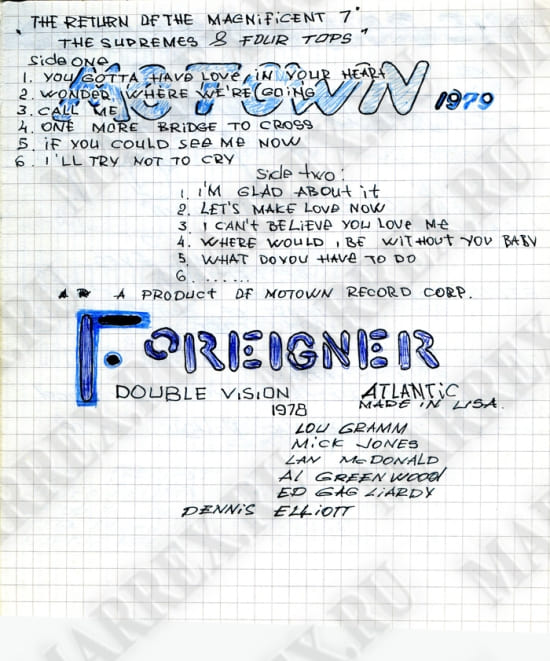 "THE RETURN OF THE MAGNIFICENT 7"
THE SUPREMES & FOUR TOPS"
Side ONE
1. YOU GOTTA HAVE LOVE IN YOUR HEART
2. WONDER, WHERE WE'RE GOING
3. CALL ME
MOTOWN 1979
4. ONE MORE BRIDGE TO CROSS
5. iF YOU COULD SEE ME NOW
6. I'LL TRY NOT TO CRY
Side two:
1. I'M GLAD ABOUt it
2. LET'S MAKE LOVE NOW
3. I CAN't BELIEVE YOU LOVE ME
4. WHERE WOULD I BE WITHOUT YOU BABY
5. WHAT DO YOU HAVE TO DO
6. ......
A PRODUCT OF MOTOWN RECORD CORP.
FOREIGNER
DOUBLE VISION ATLANTIC
1978 MADE IN USA.
LOU GRAMM
MICK JONES
LAN McDONALD
AL GREENWOOD
ED GAGLIARDY
DENNIS ELLIOTT
MARREX.RU